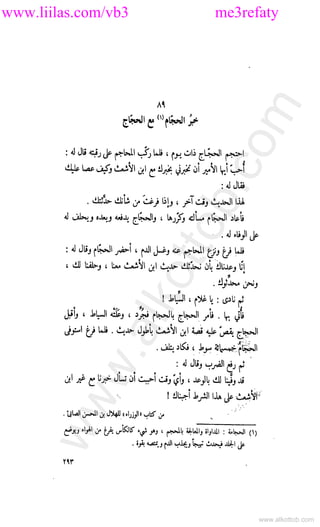 www.liilas.com/vb3 me3refaty
٨٩
خبرُ الحجّام (١) مع الحجّاج
احتجم الحجّاج ذات يوم ، فلما ركّب المحاجم على رقبته قال له :
أحبّ أيها الأمير أن تخبرني بخبرك مع ابن الأشعث وكيف عصا عليك
فقال له :
لهذا الحديث وقت آخر ، وإذا فرغت من شأنك حدّثتك .
فأعاد الحجّام مسألته وكرّرها ، والحجّاج يدفعه ويعده ويحلف له
على الوفاء له .
فلما فرغ ونزع المحاجم عنه وغسل الدم ، أحضر الحجّام وقال له :
إنّا وعدناك بأن نحدّثك حديث ابن الأشعث معنا ، وحلفنا لك ،
ونحن محدّثوك .
ثم نادى : يا غلام ، السياط !
فأُتي بها . فأمر الحجاج بالحجّام فجُرّد ، وعلته السياط ، وأقبل
الحجاج يقصّ عليه قصة ابن الأشعث بأطول حديث . فلما فرغ استوفى
الحجّام خمسمائة سوط ، فكاد يتلف .
ثم رفع الضرب وقال له :
قد وفّينا لك بالوعد ، وأيّ وقت أحببت أن تسأل خبرنا مع غير ابن
الأشعث على هذا الشرط أجبناك !
من كتاب «الوزراء» للهلال بن المحسن الصابئ .
(١) الحجامة : المداواة والمعالجة بالمحجم ، وهو شيء كالكأس يفرغ من الهواء ويوضع
على الجلد فيحدث تهيجاً ويجذب الدم ويمتصه بقوة .
٢٩٣
www.alkottob.com
www.alkottob.com